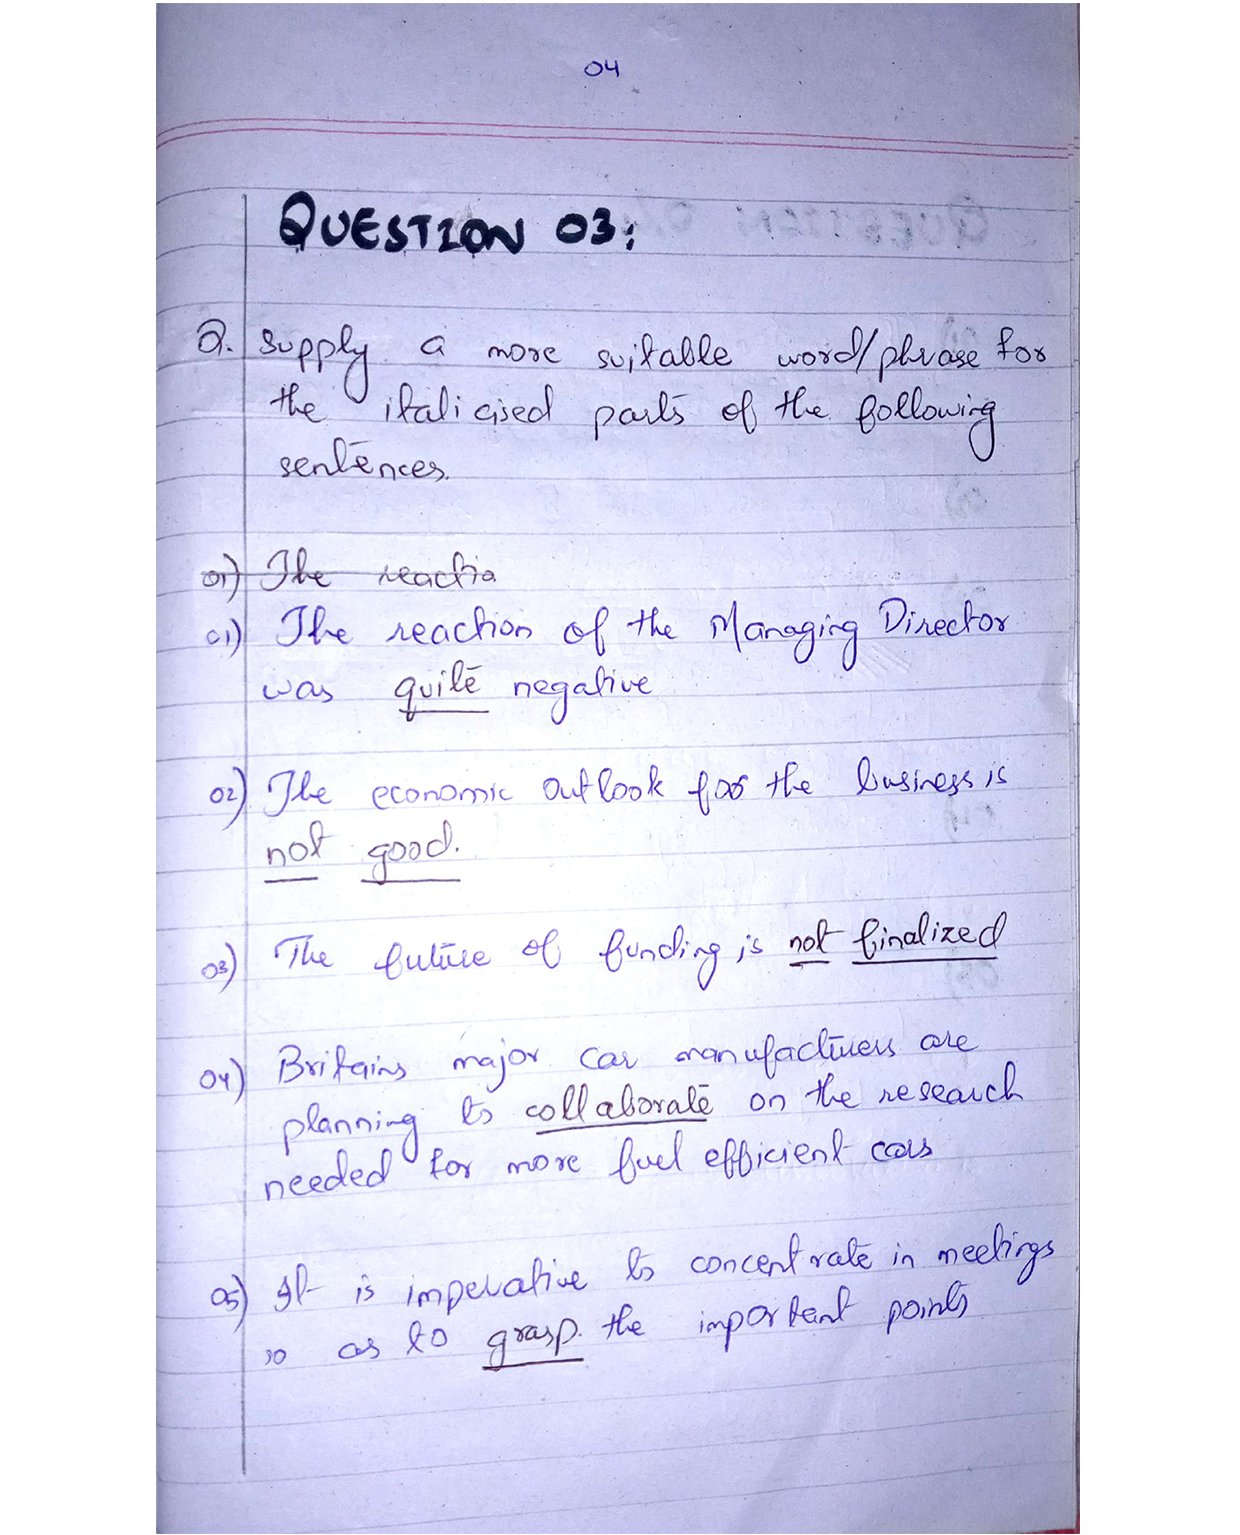 04
QUESTION 03:
Q. Supply a more suitable word/phrase for
the italicised parts of the following
sentences.
01) The reactio
01) The reaction of the Managing Director
was quite negative
02) The economic outlook for the business is
not good.
03) The future of funding is not finalized
04) Britains major car manufacturers are
planning to collaborate on the research
needed for more fuel efficient cars
05) It is imperative to concentrate in meetings
so as to grasp. the important points